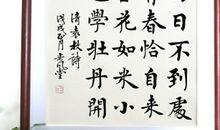 日不到處
青春恰自来
花如米小
學牡丹開
清袁枚詩
戊戌正月